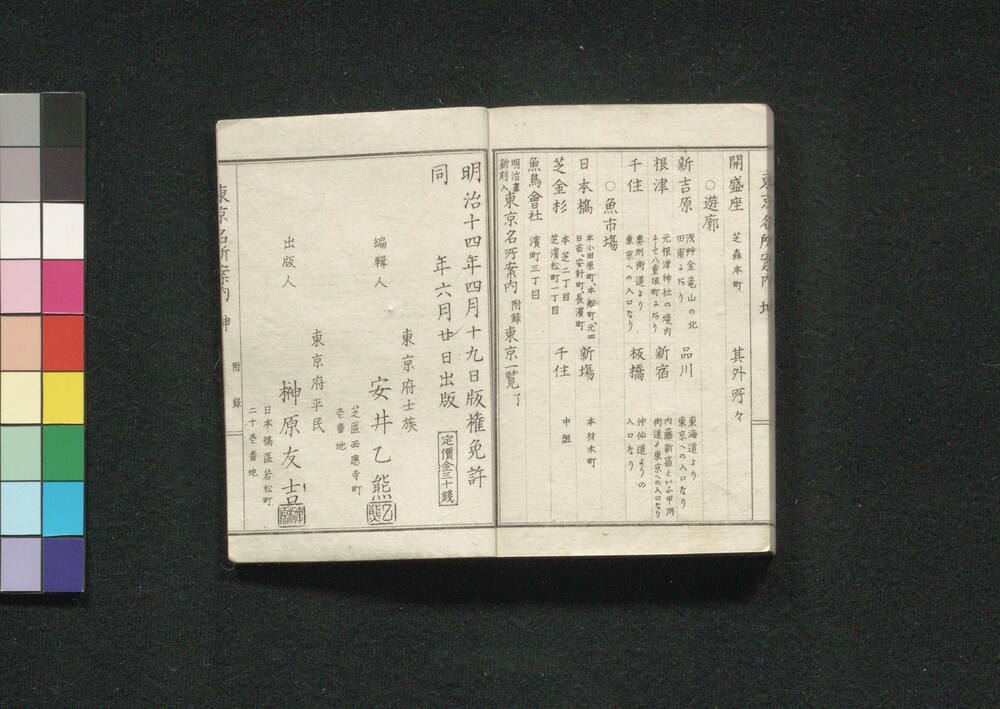 開盛座 芝森本町 其外所々
○遊廓
新吉原 浅艸金竜山の北
田甫にあり
品川 東海道より
東京への入口なり
根津 元根津神社の境内
新宿 内藤新宿といふ甲州
街道より東京への入口なり
千住 奥州街道より
東京への入口なり
板橋 仲仙道よりの
入口なり
○魚市塲
日本橋 本小田原町、本船町、元四
日市、安針町、長濱町
新塲 本材木町
芝金杉 本芝二丁目
芝濱松町一丁目
千住 中組
魚鳥會社 濱町三丁目
明治畫
新刻入 東京名所案内 附録 東京一覧 了
明治十四年四月十九日版権免許
同 年六月廿日出版
定價金三十錢
東京府士族
編輯人 安井乙熊
芝區西應寺町
壱番地
東京府平民
出版人 榊原友吉
日本橋區若松町
二十壱番地
東京名所案内 附録